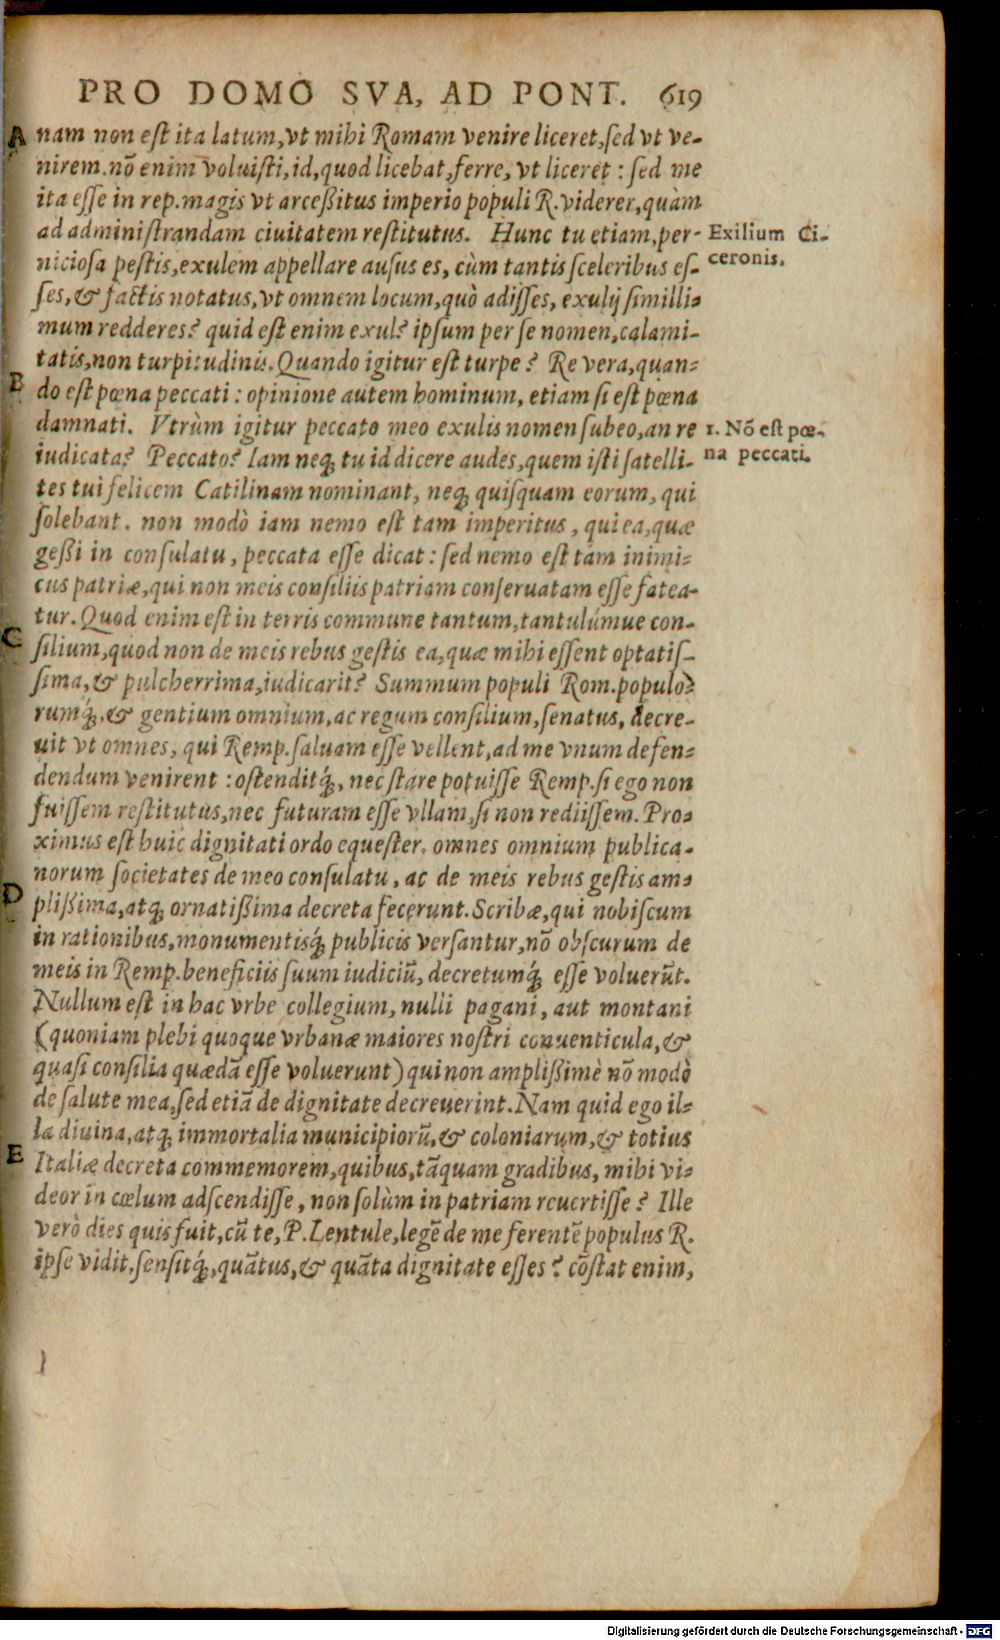 PRO DOMO SVA, AD PONT. 619
A nam non eſt ita latum, vt mihi Romam venire liceret, ſed vt ve-
nirem. nō enim voluiſti, id, quod licebat, ferre, vt liceret: ſed me
ita eſſe in rep. magis vt arceßitus imperio populi R. viderer, quàm
ad adminiſtrandam ciuitatem reſtitutus. Hunc tu etiam, per-
Exilium Ci-
ceronis.
nicioſa peſtis, exulem appellare auſus es, cùm tantis ſceleribus eſ-
ſes, & factis notatus, vt omnem locum, quò adiſſes, exulij ſimilli-
mum redderes? quid eſt enim exul? ipſum per ſe nomen, calami-
tatis, non turpitudinis. Quando igitur eſt turpe? Re vera, quan-
B do eſt pœna peccati: opinione autem hominum, etiam ſi eſt pœna
damnati. Vtrùm igitur peccato meo exulis nomen ſubeo, an re
1. Nō eſt pœ-
na peccati.
iudicata? Peccato? Iam neq; tu id dicere audes, quem iſti ſatelli-
tes tui felicem Catilinam nominant, neq; quiſquam eorum, qui
ſolebant. non modò iam nemo eſt tam imperitus, qui ea, quæ
geßi in conſulatu, peccata eſſe dicat: ſed nemo eſt tàm inimi-
cus patriæ, qui non meis conſiliis patriam conſeruatam eſſe fatea-
tur. Quod enim eſt in terris commune tantum, tantulúmue con-
C ſilium, quod non de meis rebus geſtis ea, quæ mihi eſſent optatiſ-
ſima, & pulcherrima, iudicarit? Summum populi Rom. populo-
rumq́;, & gentium omnium, ac regum conſilium, ſenatus, decre-
uit vt omnes, qui Remp. ſaluam eſſe vellent, ad me vnum defen-
dendum venirent: oſtenditq́;, nec ſtare potuiſſe Remp. ſi ego non
fuiſſem reſtitutus, nec futuram eſſe vllam, ſi non rediiſſem. Pro-
ximus eſt huic dignitati ordo equeſter. omnes omnium publica-
norum ſocietates de meo conſulatu, ac de meis rebus geſtis am-
D plißima, atq; ornatißima decreta fecerunt. Scribæ, qui nobiſcum
in rationibus, monumentisq́; publicis verſantur, nō obſcurum de
meis in Remp. beneficiis ſuum iudiciū, decretumq́; eſſe voluerūt.
Nullum eſt in hac vrbe collegium, nulli pagani, aut montani
(quoniam plebi quoque vrbanæ maiores noſtri conuenticula, &
quaſi conſilia quædā eſſe voluerunt) qui non amplißimè nō modò
de ſalute mea, ſed etiā de dignitate decreuerint. Nam quid ego il-
la diuina, atq; immortalia municipiorū, & coloniarum, & totius
E Italiæ decreta commemorem, quibus, tāquam gradibus, mihi vi-
deor in cœlum adſcendiſſe, non ſolùm in patriam reuertiſſe? Ille
verò dies quis fuit, cū te, P. Lentule, legē de me ferentē populus R.
ipſe vidit, ſenſitq́;, quātus, & quāta dignitate eſſes? cōſtat enim,
Digitalisierung gefördert durch die Deutsche Forschungsgemeinschaft - DFG